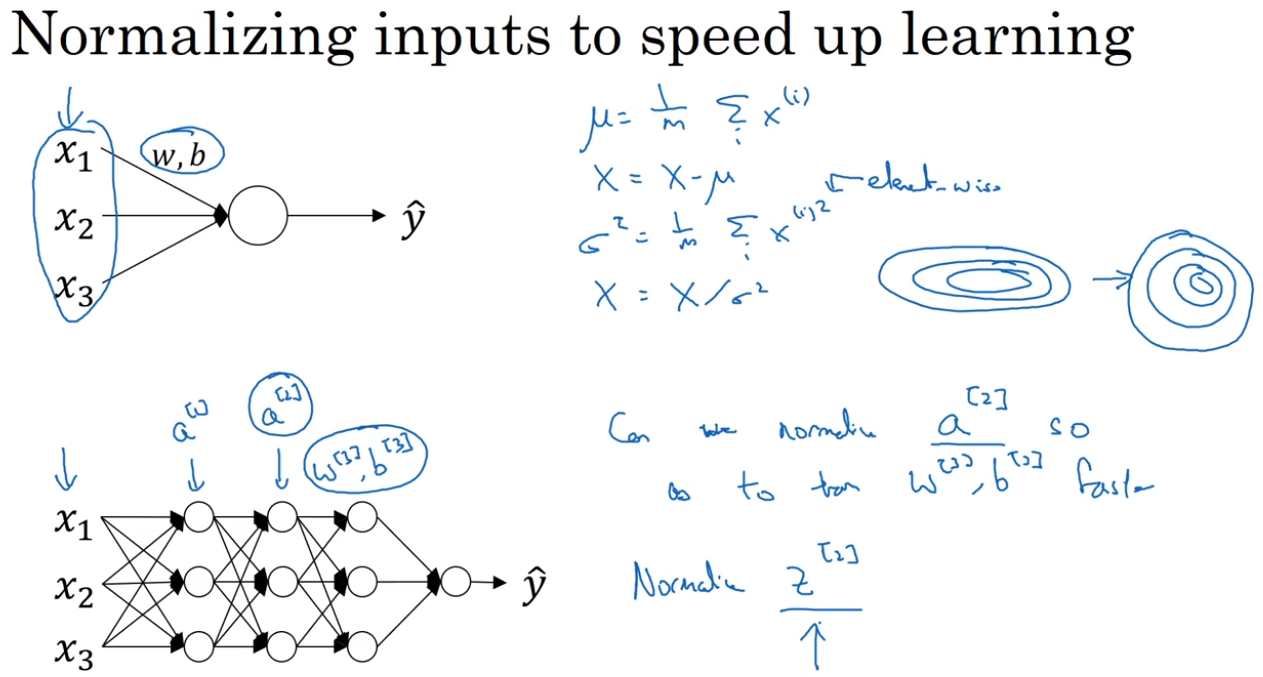 Normalizing inputs to speed up learning
x₁
w, b
x₂
x₃
ŷ
μ = 1/m Σᵢ x⁽ⁱ⁾
X = X - μ
σ² = 1/m Σᵢ x⁽ⁱ⁾²
← element-wise
X = X / σ²
a^[1]
a^[2]
w^[3], b^[3]
x₁
x₂
x₃
ŷ
Can we normalize a^[2] so
as to train w^[3], b^[3] faster
Normalize z^[2]